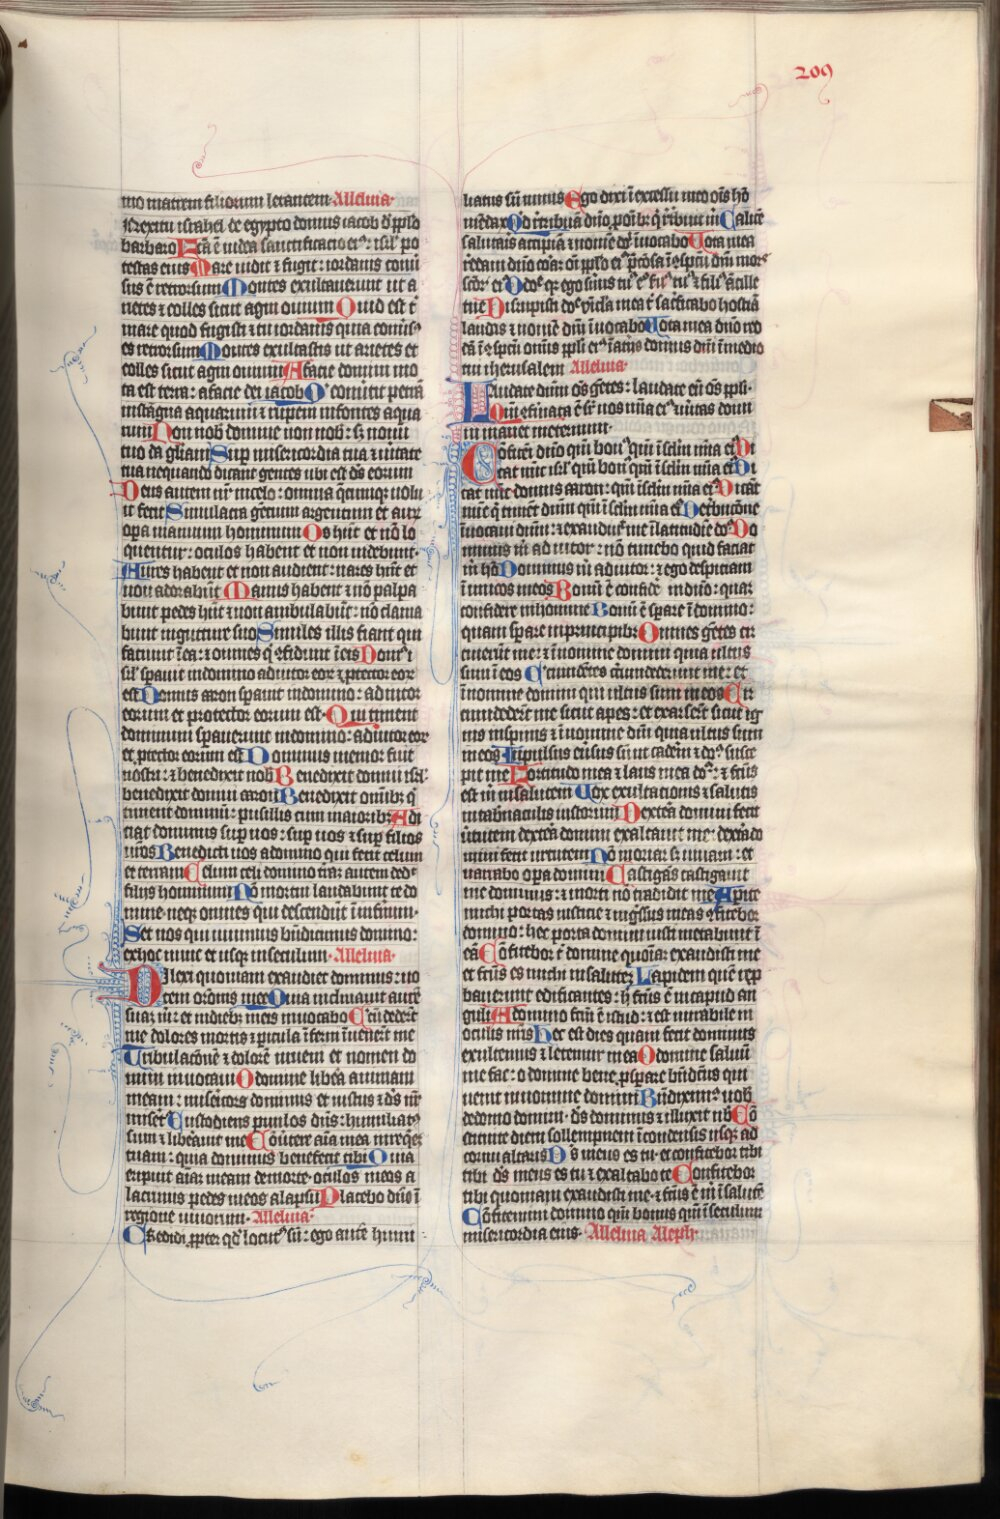 209
mo matrem filiorum letantem. Alleluia.
IN exitu israhel de egypto domus iacob d̄ pp̄lo
barbaro Fc̄a ē iudea sanctificacio eiꝰ: isrl̄ po
testas eius Mare uidit ⁊ fugit: iordanis conu̅
sus ē retrorsum Montes exultauerunt ut a
rietes ⁊ colles sicut agni ouium Quid est t̄
mare quod fugisti ⁊ tu iordanis quia conu̅sꝰ
es retrorsum Montes exultastis ut arietes et
colles sicut agni ouium A facie domini mo
ta est terra: a facie dei iacob Qꝰ conuertit petrā
in stagna aquarum ⁊ rupem in fontes aqua
rum Non nob̄ domine non nob̄: sꝫ nomi
tuo da gliam Suꝑ misericordia tua ⁊ ueritate
tua nequando dicant gentes ubi est ds̄ eorum
Deus autem nr̄ in celo: omnia q̄cumqꝫ uolu
it fecit Simulacra gētium argentum et aur̄
opa manuum hominum Os hn̄t et nō lo
quentur: oculos habent et non uidebunt.
Aures habent et non audient: nares hn̄t et
non adorabūt Manus habent ⁊ nō palpa
bunt pedes hn̄t ⁊ non ambulabūt: nō clama
bunt in gutture suo Similes illis fiant qui
faciunt ea: ⁊ omnes q̄ ꝯfidunt in eis Domꝰ i
srl̄ spauit in domino adiutor eoꝝ ⁊ ꝓtector eoꝝ
est Domus aron spauit in domino: adiutor
eorum et protector eorum est. Qui timent
dominum sperauerunt in domino: adiutor eoꝝ
et ꝓtector eorum est Dominus memor fuit
nostri: ⁊ benedixit nob̄ Benedixit domui isrl̄:
benedixit domui aaron Benedixit omībꝫ q̄
timent dominū: pusillis cum maioribꝫ Adi
ciat dominus suꝑ uos: suꝑ uos ⁊ suꝑ filios
uros Benedicti uos a domino qui fecit celum
et terram Celum celi domino tr̄am autem dedꝰ
filiis hominum Nō mortui laudabunt te do
mine: neqꝫ omnes qui descendūt in infernū.
Set nos qui uiuimus bn̄dicimus domino:
ex hoc nunc et usqꝫ in seculum. Alleluia.
Dilexi quoniam exaudiet dominus: uo
cem orōnis mee Quia inclinauit aurē
suaꝫ m̄: et in diebꝫ meis inuocabo Circūdedert̄
me dolores mortis ⁊ ꝑicula īferni īuenert̄ me
Tribulacionē ⁊ dolorē inueni et nomen do
mini inuocaui O domine libēa animam
meam: misericors dominus et iustus ⁊ ds̄ nr̄
miseret̄ Custodiens paruulos dn̄s: humiliatꝰ
sum ⁊ libērauit me Cōuertere aīa mea in requiē
tuam: quia dominus benefecit tibi Quia
eripuit aīaꝫ meam de morte: oculos meos a
lacrimis pedes meos a lapsu Placebo dn̄o ī
regione uiuorum. Alleluia.
Credidi ꝓpter qd̄ locutꝰ sū: ego autē humi
liatus sū nimis Ego dixi ī excessu meo oīs hō
mēdax Qd̄ retribuā dn̄o ꝓ oībꝫ q̄ retribuit m̄ Calicē
salutaris accipiā ⁊ nomē dn̄i īuocabo Uota mea
reddam dn̄o corā oī pp̄lo eiꝰ p̄ciosa ī ꝯspc̄u dn̄i mors
sc̄oꝝ eiꝰ O dn̄e qꝛ ego seruus tuꝰ ego ẜuꝰ tuꝰ ⁊ filiꝰ ancille
tue Disrupisti dn̄e uīcla mea t̄ sacrificabo hostiā
laudis ⁊ nomē dn̄i īuocabo Uota mea dn̄o red
dā ī ꝯspc̄u omnis pp̄li eiꝰ ī atriis domus dn̄i ī medio
tui iherusalem Alleluia.
Laudate dn̄m oēs gētes: laudate eū oēs pp̄li.
Qm̄ ꝯfirmata ē sꝑ nos mīa eiꝰ ⁊ uītas domi
ni manet in eternum.
Cōfitemī dn̄o qm̄ bonꝰ qm̄ ī sclm̄ mīa eiꝰ Di
cat nūc isrl̄ qm̄ bonꝰ qm̄ ī sclm̄ mīa eiꝰ Di
cat nūc domus aaron: qm̄ ī sclm̄ mīa eiꝰ Dicāt
nūc q̄ timēt dn̄m qm̄ ī sclm̄ mīa eiꝰ De tribulacōne
īuocaui dn̄m: ⁊ exaudiuit me ī latitudīe dn̄s Do
minus m̄ adiutor: nō timebo quid faciat
m̄ hō Dominus m̄ adiutor: ⁊ ego despiciam
īimicos meos Bonū ē confidē in dn̄o: quaꝫ
confidere in homine Bonū ē sperare ī domino:
quam sperare in principibꝫ Omnes gētes cir
cuierūt me: ⁊ ī nomine domini quia ultus
sum ī eos Circumdātes circūdederunt me: et
ī nomine domini qui ultus sum in eos Cir
cumdedert̄ me sicut apes: et exarsert̄ sicut ig
nis in spinis ⁊ in nomine dn̄i quia ultus sum
in eos Impulsus euersus sū ut caderē ⁊ dn̄s susce
pit me Fortitudo mea ⁊ laus mea dn̄s: ⁊ fc̄us
est m̄ in salutem Uox exultacionis ⁊ salutis
in tabernaculis iustorum Dextera domini fecit
uirtutem dextera domini exaltauit me: dextera do
mini fecit uirtutem Nō moriar sꝫ uiuam: et
narrabo opera domini Castigās castigauit
me dominus: ⁊ morti nō tradidit me Aperite
michi portas iusticie ⁊ ingr̄ssus in eas ꝯfitebor
domino: hec porta domini iusti intrabunt ī
eā Cōfitebor t̄ domine quoniā exaudisti me
et fc̄us es michi in salutē Lapidem quē repro
bauerunt edificantes: h̄ fc̄us ē in caput an
guli A domino fc̄m ē istud: ⁊ est mirabile in
oculis nr̄is Hec est dies quam fecit dominus
exultemus ⁊ letemur in ea O domine saluū
me fac: o domine bene ꝓsperare bn̄dictus qui
uenit in nomine domini Bn̄diximꝰ uob̄
de domo domini: ds̄ dominus ⁊ illuxit nob̄ Cō
stituite diem sollempnem ī condensis usqꝫ ad
cornu altaris Ds̄ meus es tu: et confitebor tibi
tibi ds̄ meus es tu ⁊ exaltabo te Confitebor
tibi quoniam exaudisti me: ⁊ fc̄us ē m̄ ī salutē
Cōfitemini domino qm̄ bonus qm̄ ī seculum
misericordia eius. Alleluia Aleph.